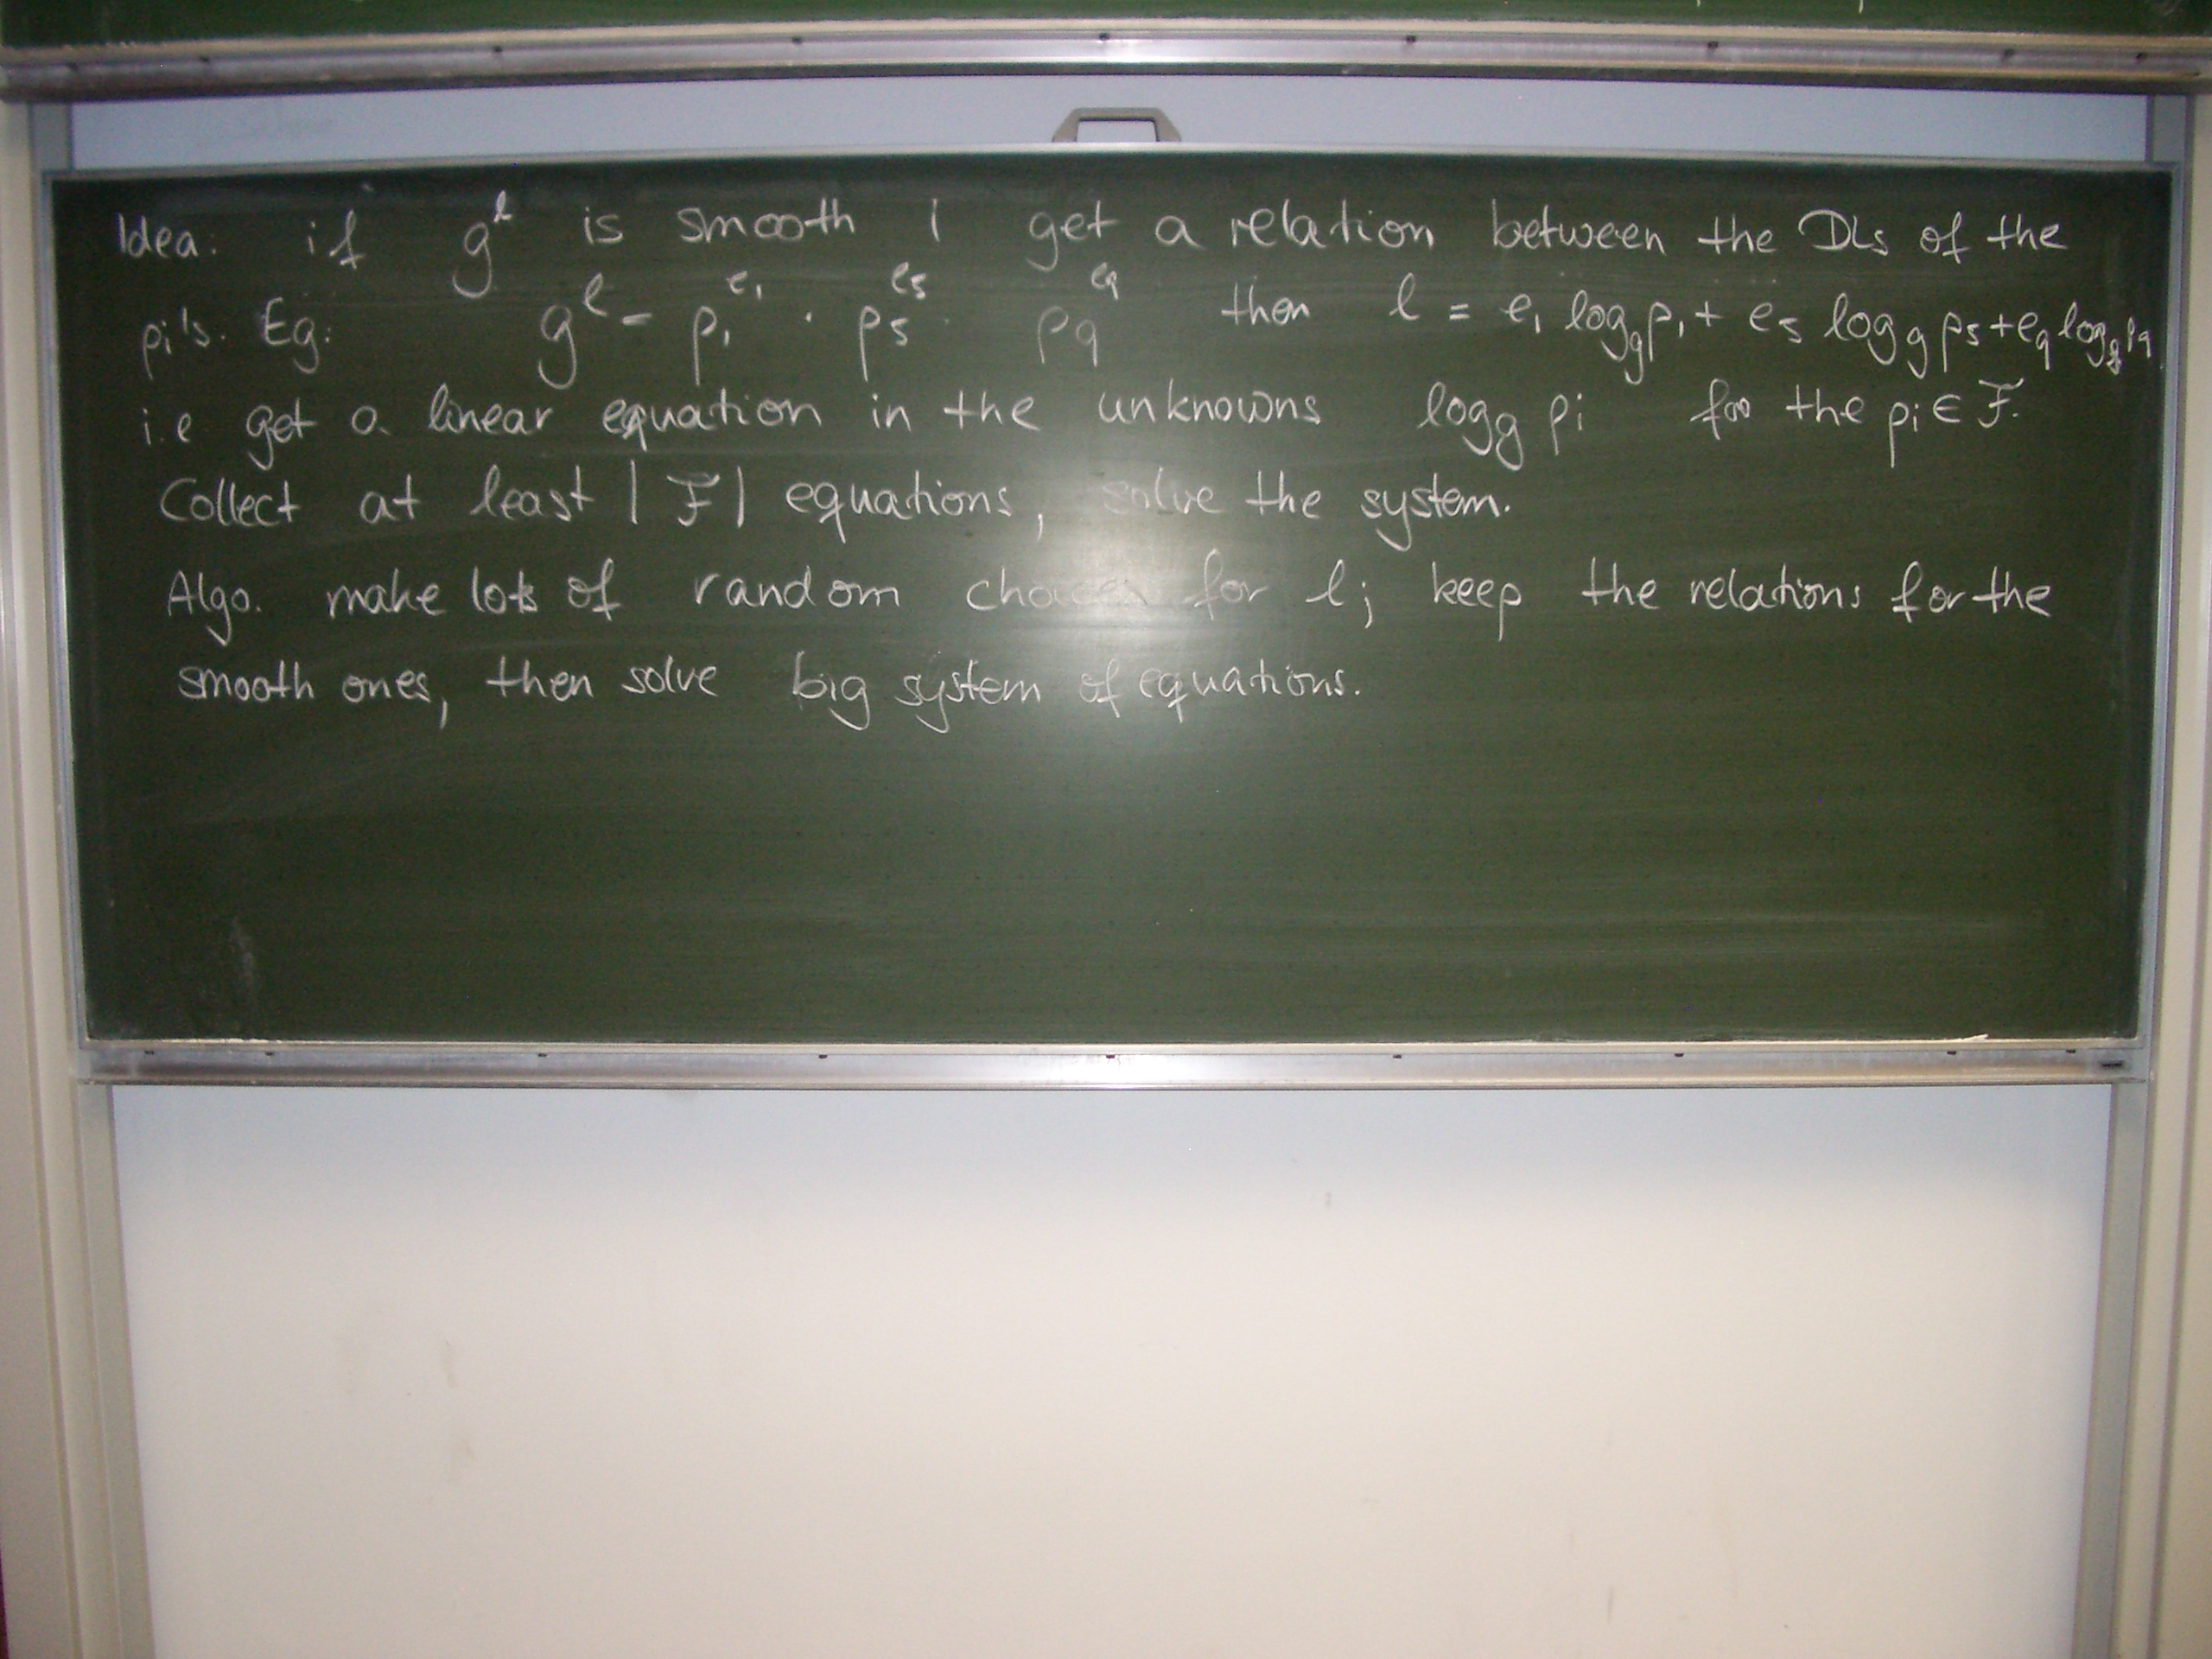 Idea: if g^l is smooth I get a relation between the DLs of the
pi's. Eg: g^l = p₁^e₁ · p₅^e₅ · p₉^e₉ then l = e₁ log_g p₁ + e₅ log_g p₅ + e₉ log_g p₉
i.e get a linear equation in the unknowns log_g pi for the pi ∈ F.
Collect at least |F| equations, solve the system.
Algo. make lots of random choices for l; keep the relations for the
smooth ones, then solve big system of equations.